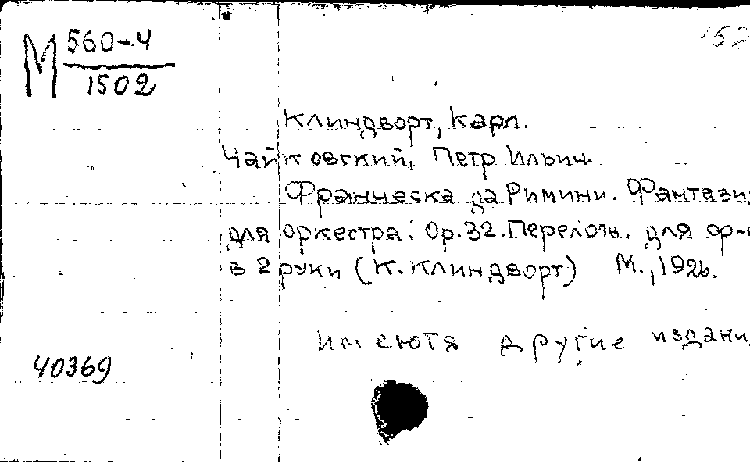 М 560-4
1502
Клиндворт, Карл.
Чайковский, Петр Ильич.
Франческа да Римини. Фантази
для оркестра. Ор.32. Перелож. для ф-
в 2 руки (К. Клиндворт) М.,
имеютя другие издани
40369